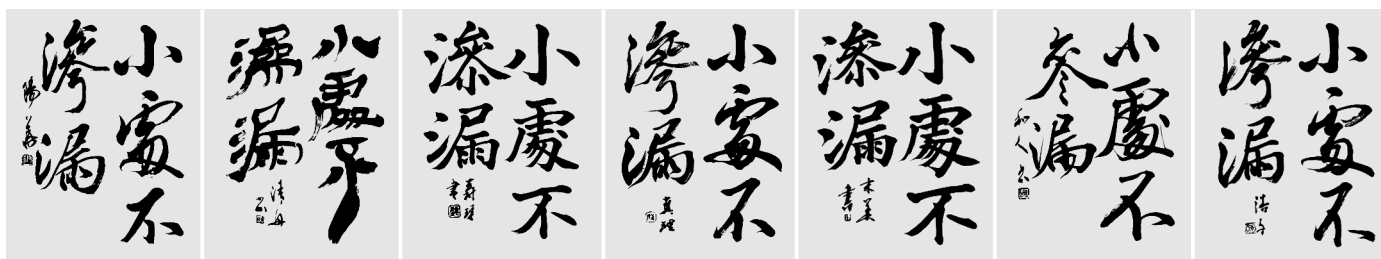 小處不
滲漏
小處不
滲漏
小處不
滲漏
小處不
滲漏
真理
小處不
滲漏
小處不
滲漏
小處不
滲漏